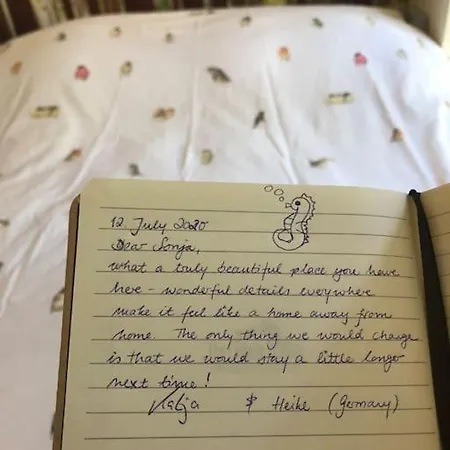 12 July 2020
Dear Sonja,
what a truly beautiful place you have
here - wonderful details everywhere
make it feel like a home away from
home. The only thing we would change
is that we would stay a little longer
next time!
Katja & Heike (Germany)